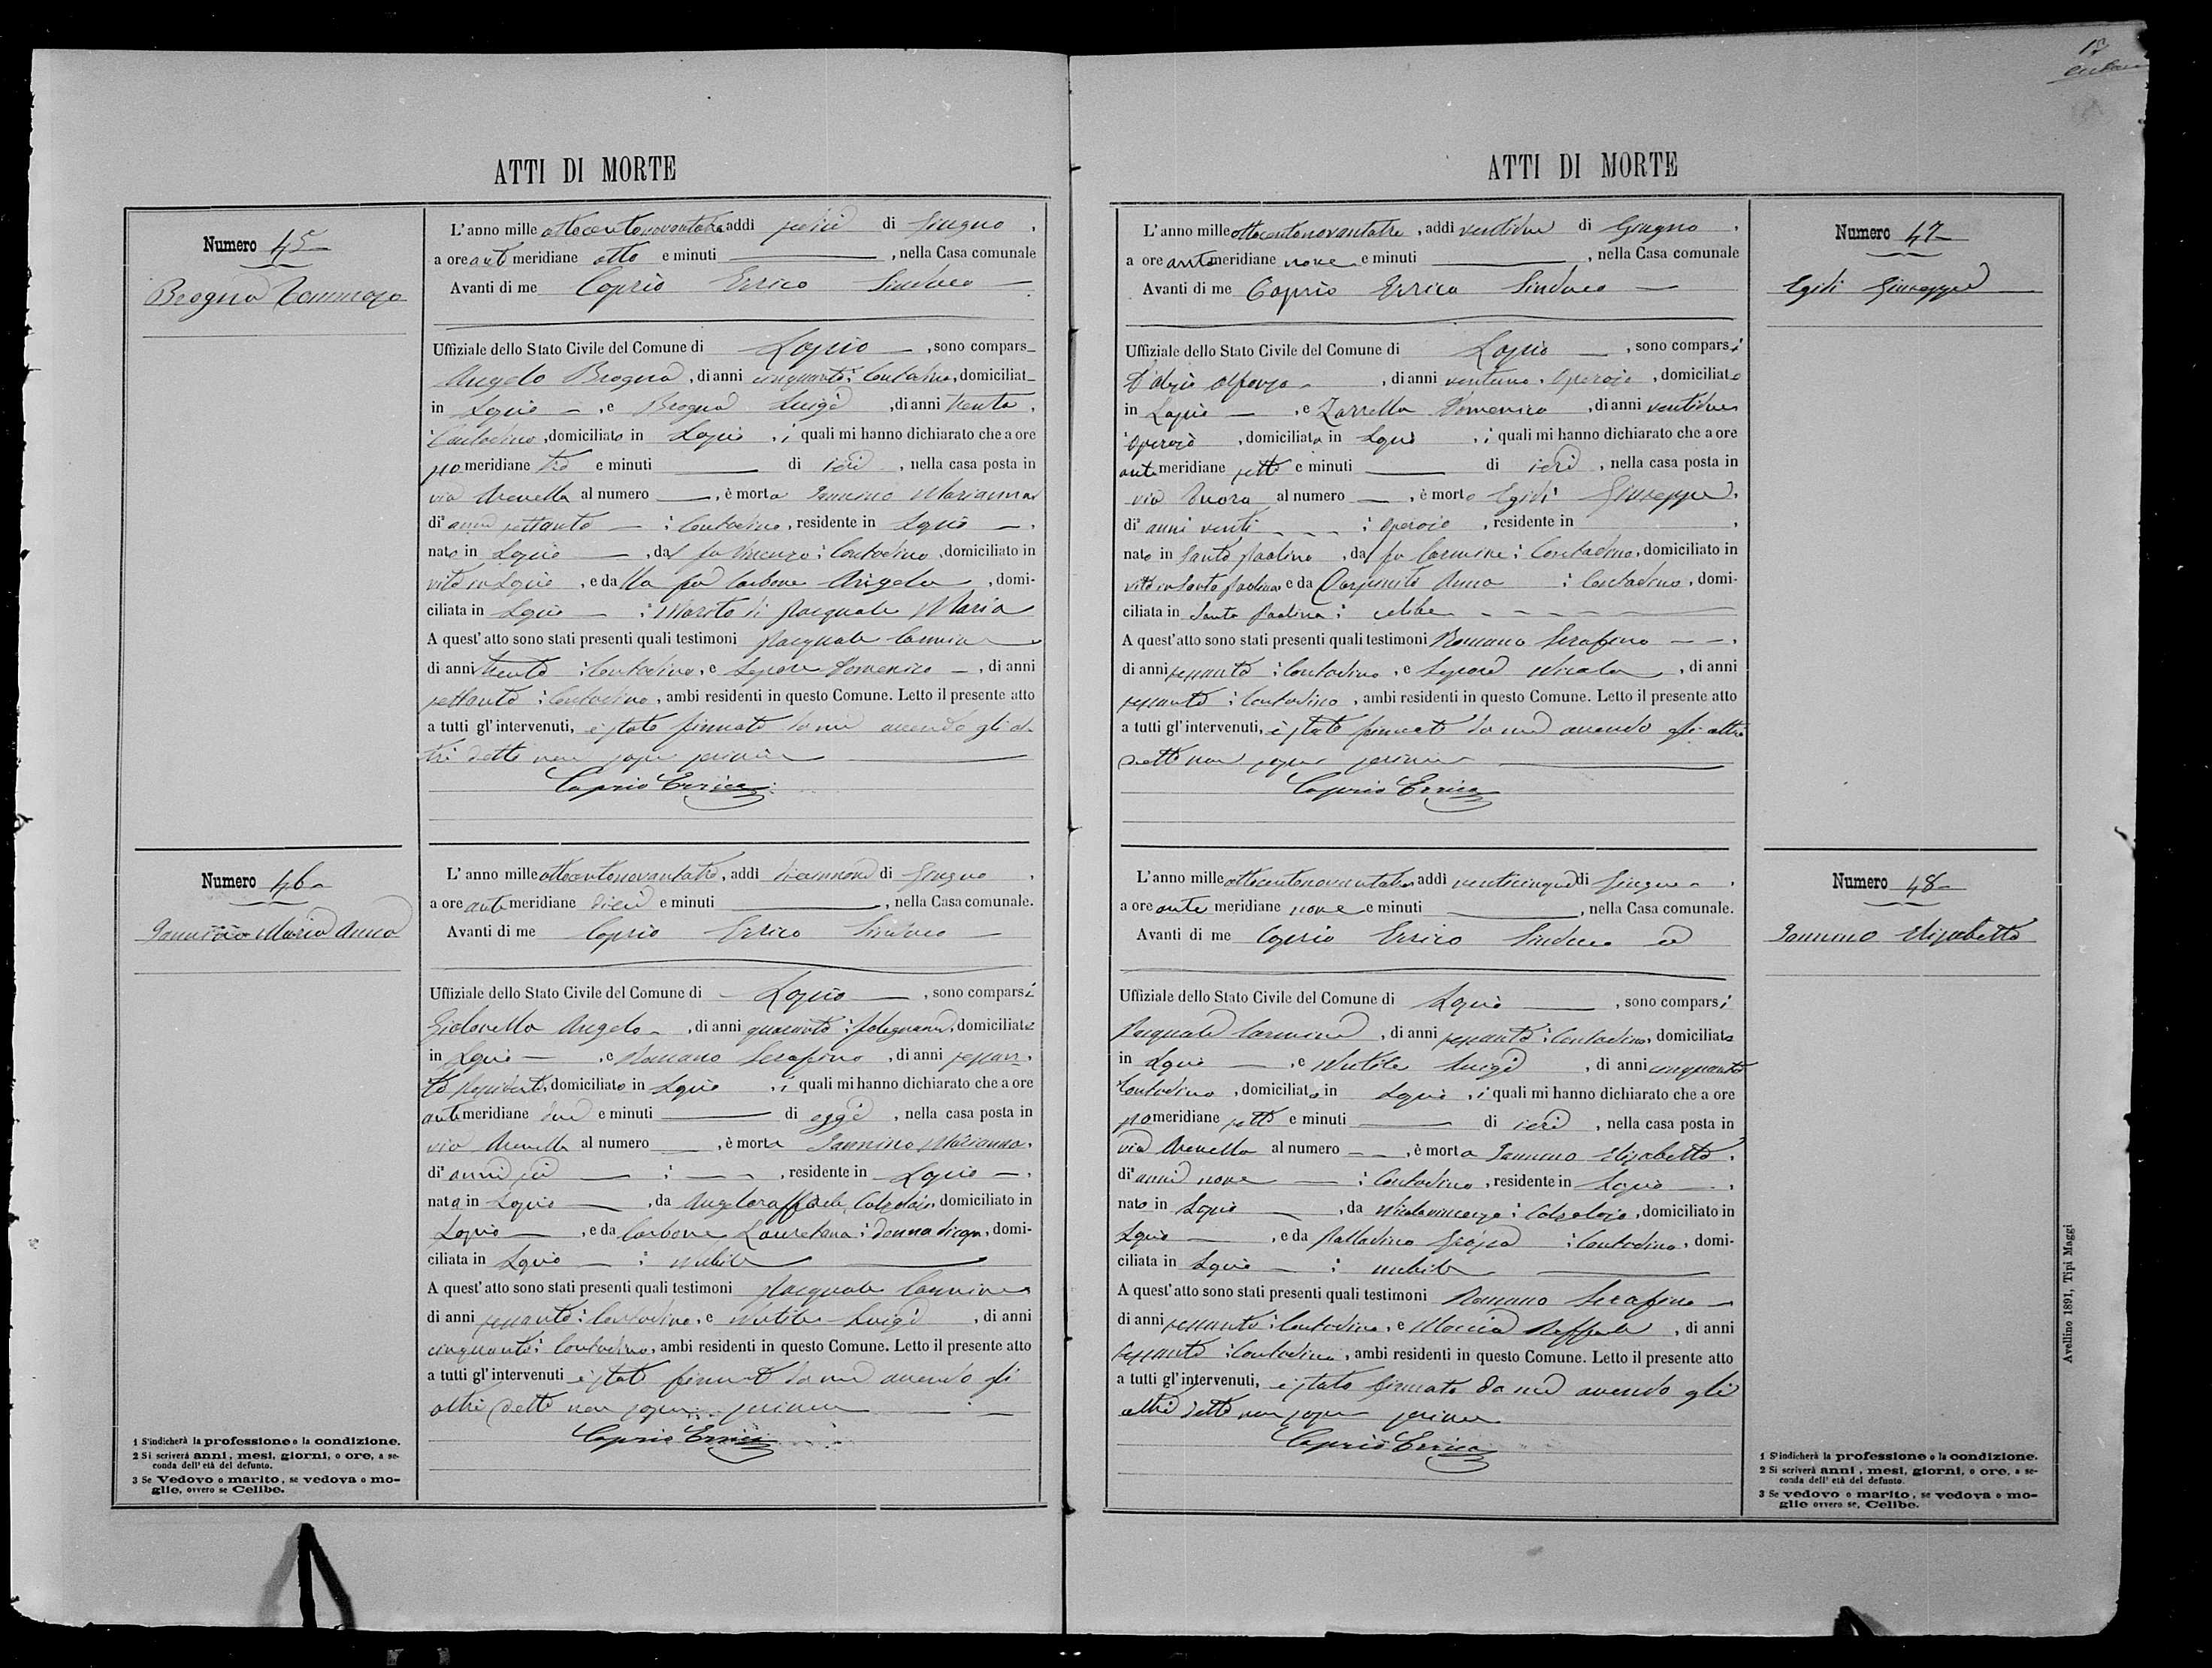 ATTI DI MORTE
Numero 45
Brogna Tommaso
L'anno mille ottocentonovantatre, addì sedici di Giugno,
a ore anti meridiane otto e minuti , nella Casa comunale
Avanti di me Caprio Errico Sindaco
Uffiziale dello Stato Civile del Comune di Lapio, sono compars_
Angelo Brogna, di anni cinquanta, Contadino, domiciliat_
in Lapio, e Brogna Luigi, di anni trenta,
Contadino, domiciliato in Lapio, i quali mi hanno dichiarato che a ore
po meridiane tre e minuti di ieri, nella casa posta in
via Arenella al numero , è morta Iannino Marianna
di anni settanta : Contadino, residente in Lapio,
nato in Lapio, da fu Vincenzo : Contadino, domiciliato in
vita in Lapio, e da lla fu Carbone Angela, domi-
ciliata in Lapio : Marito di Pasquale Maria
A quest'atto sono stati presenti quali testimoni Pasquale Carmine
di anni trenta : Contadino, e Lepore Domenico, di anni
settanta : Contadino, ambi residenti in questo Comune. Letto il presente atto
a tutti gl'intervenuti, è stato firmato da me avendo gli al-
tri detto non saper scrivere
Caprio Errico
Numero 46
Iannino Maria Anna
L'anno mille ottocentonovantatre, addì diciannove di Giugno,
a ore anti meridiane dieci e minuti , nella Casa comunale.
Avanti di me Caprio Errico Sindaco
Uffiziale dello Stato Civile del Comune di Lapio, sono comparsi
Angelo, di anni quaranta : falegname, domiciliato
in Lapio, e Romano Serafino, di anni sessan-
ta, domiciliato in Lapio, i quali mi hanno dichiarato che a ore
anti meridiane due e minuti di oggi, nella casa posta in
via Arenella al numero , è morta Iannino Marianna,
di anni sei : , residente in Lapio,
nata in Lapio, da Angeloraffaele, Calzolaio, domiciliato in
Lapio, e da Carbone Lauretana : donna di casa, domi-
ciliata in Lapio : nubile
A quest'atto sono stati presenti quali testimoni Pasquale Carmine
di anni sessanta : Contadino, e Nutile Luigi, di anni
cinquanta : Contadino, ambi residenti in questo Comune. Letto il presente atto
a tutti gl'intervenuti è stato firmato da me avendo gli
altri detto non saper scrivere
Caprio Errico
1 S'indicherà la professione o la condizione.
2 Si scriverà anni, mesi, giorni, o ore, a se-
conda dell'età del defunto.
3 Se Vedovo o marito, se vedova o mo-
glie, ovvero se Celibe.
17
ATTI DI MORTE
L'anno mille ottocentonovantatre, addì ventidue di Giugno,
a ore anti meridiane nove e minuti , nella Casa comunale
Avanti di me Caprio Errico Sindaco
Uffiziale dello Stato Civile del Comune di Lapio, sono comparsi
Alfonso, di anni ventuno, Operaio, domiciliato
in Lapio, e Zarrella Domenico, di anni ventidue
Operaio, domiciliato in Lapio, i quali mi hanno dichiarato che a ore
anti meridiane sette e minuti di ieri, nella casa posta in
via Tuoro al numero , è morto Egidi Giuseppe,
di anni venti : Operaio, residente in ,
nato in Santa Paolina, da fu Carmine : Contadino, domiciliato in
vita in Santa Paolina e da Anna : Contadina, domi-
ciliata in Santa Paolina : celibe
A quest'atto sono stati presenti quali testimoni Romano Serafino,
di anni sessanta : Contadino, e Lepore Nicola, di anni
sessanta : Contadino, ambi residenti in questo Comune. Letto il presente atto
a tutti gl'intervenuti, è stato firmato da me avendo gli altri
detto non saper scrivere
Caprio Errico
Numero 47
Egidi Giuseppe
L'anno mille ottocentonovantatre addì venticinque di Giugno,
a ore ante meridiane nove e minuti , nella Casa comunale.
Avanti di me Caprio Errico Sindaco ed
Uffiziale dello Stato Civile del Comune di Lapio, sono comparsi
Pasquale Carmine, di anni sessanta : Contadino, domiciliato
in Lapio, e Nutile Luigi, di anni cinquanta
Contadino, domiciliato in Lapio, i quali mi hanno dichiarato che a ore
po meridiane sette e minuti di ieri, nella casa posta in
via Arenella al numero , è morta Iannino Elisabetta,
di anni nove : Contadina, residente in Lapio,
nato in Lapio, da Nicolavincenzo : Calzolaio, domiciliato in
Lapio, e da Palladino : Contadina, domi-
ciliata in Lapio : nubile
A quest'atto sono stati presenti quali testimoni Romano Serafino
di anni sessanta : Contadino, e Moccia Raffaele, di anni
sessanta : Contadino, ambi residenti in questo Comune. Letto il presente atto
a tutti gl'intervenuti, è stato firmato da me avendo gli
altri detto non saper scrivere
Caprio Errico
Numero 48
Iannino Elisabetta
1 S'indicherà la professione o la condizione.
2 Si scriverà anni, mesi, giorni, o ore, a se-
conda dell'età del defunto.
3 Se vedovo o marito, se vedova o mo-
glie ovvero se, Celibe.
Avellino 1891, Tipi Maggi